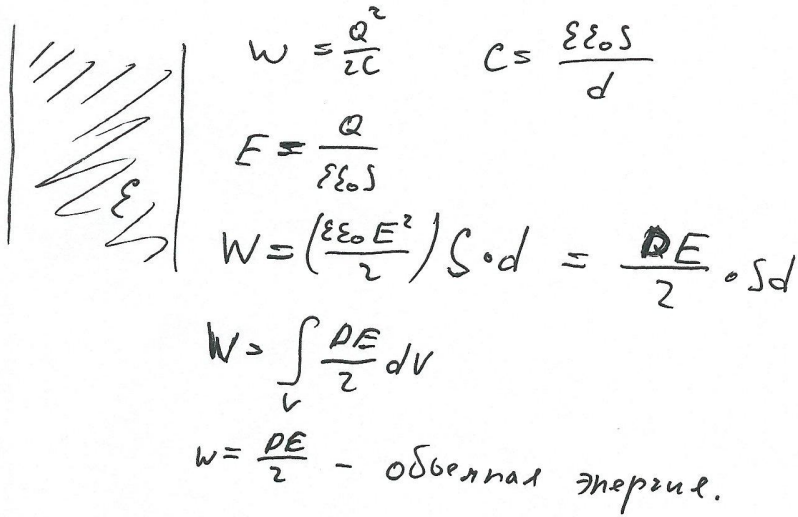 W = Q²/2C   C = εε₀S/d
ε
E = Q/εε₀S
W = (εε₀E²/2) S·d = DE/2 · Sd
W = ∫_V DE/2 dV
w = DE/2 – объемная энергия.